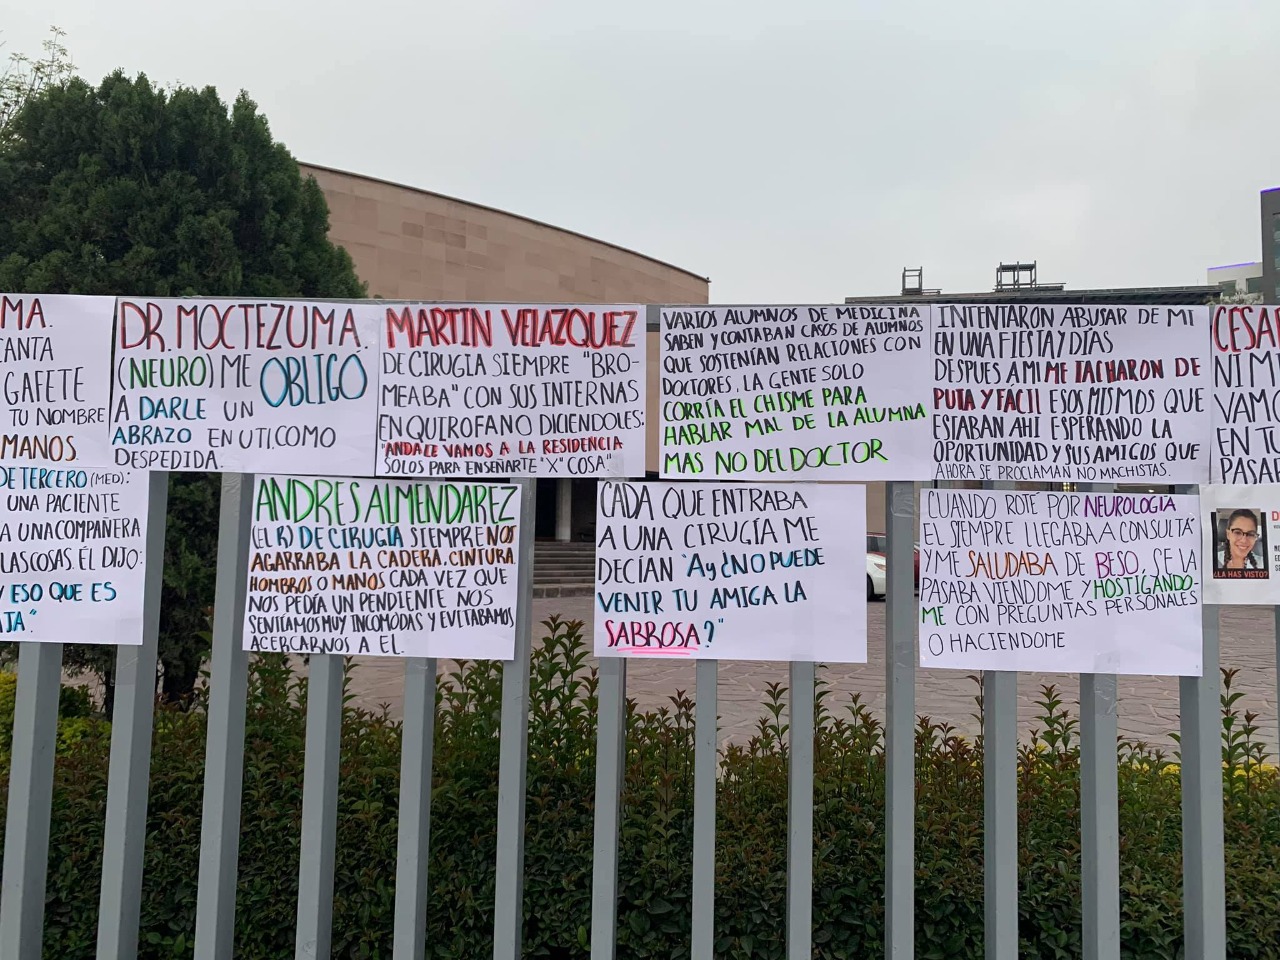 MA.
CANTA
GAFETE
TU NOMBRE
MANOS.
DR. MOCTEZUMA.
(NEURO) ME OBLIGÓ
A DARLE UN
ABRAZO EN UTI. COMO
DESPEDIDA.
MARTIN VELAZQUEZ
DE CIRUGÍA SIEMPRE "BRO-
MEABA" CON SUS INTERNAS
EN QUIROFANO DICIENDOLES:
"ANDALE VAMOS A LA RESIDENCIA
SOLOS PARA ENSEÑARTE "X" COSA"
VARIOS ALUMNOS DE MEDICINA
SABEN Y CONTABAN CASOS DE ALUMNOS
QUE SOSTENÍAN RELACIONES CON
DOCTORES. LA GENTE SOLO
CORRÍA EL CHISME PARA
HABLAR MAL DE LA ALUMNA
MAS NO DEL DOCTOR
INTENTARON ABUSAR DE MI
EN UNA FIESTA Y DÍAS
DESPUES A MI ME TACHARON DE
PUTA Y FÁCIL ESOS MISMOS QUE
ESTABAN AHI ESPERANDO LA
OPORTUNIDAD Y SUS AMIGOS QUE
AHORA SE PROCLAMAN NO MACHISTAS.
CESA
NI M
VAMO
EN TU
PASAR
DE TERCERO (MED):
UNA PACIENTE
A UNA COMPAÑERA
LAS COSAS. ÉL DIJO:
Y ESO QUE ES
JTA".
ANDRES ALMENDAREZ
(EL R) DE CIRUGÍA SIEMPRE NOS
AGARRABA LA CADERA, CINTURA
HOMBROS O MANOS CADA VEZ QUE
NOS PEDÍA UN PENDIENTE NOS
SENTÍAMOS MUY INCOMODAS Y EVITABAMOS
ACERCARNOS A EL.
CADA QUE ENTRABA
A UNA CIRUGÍA ME
DECÍAN "Ay ¿NO PUEDE
VENIR TU AMIGA LA
SABROSA?"
CUANDO ROTE POR NEUROLOGÍA
EL SIEMPRE LLEGABA A CONSULTA
Y ME SALUDABA DE BESO, SE LA
PASABA VIENDOME Y HOSTIGANDO-
ME CON PREGUNTAS PERSONALES
O HACIENDOME
¿LA HAS VISTO?